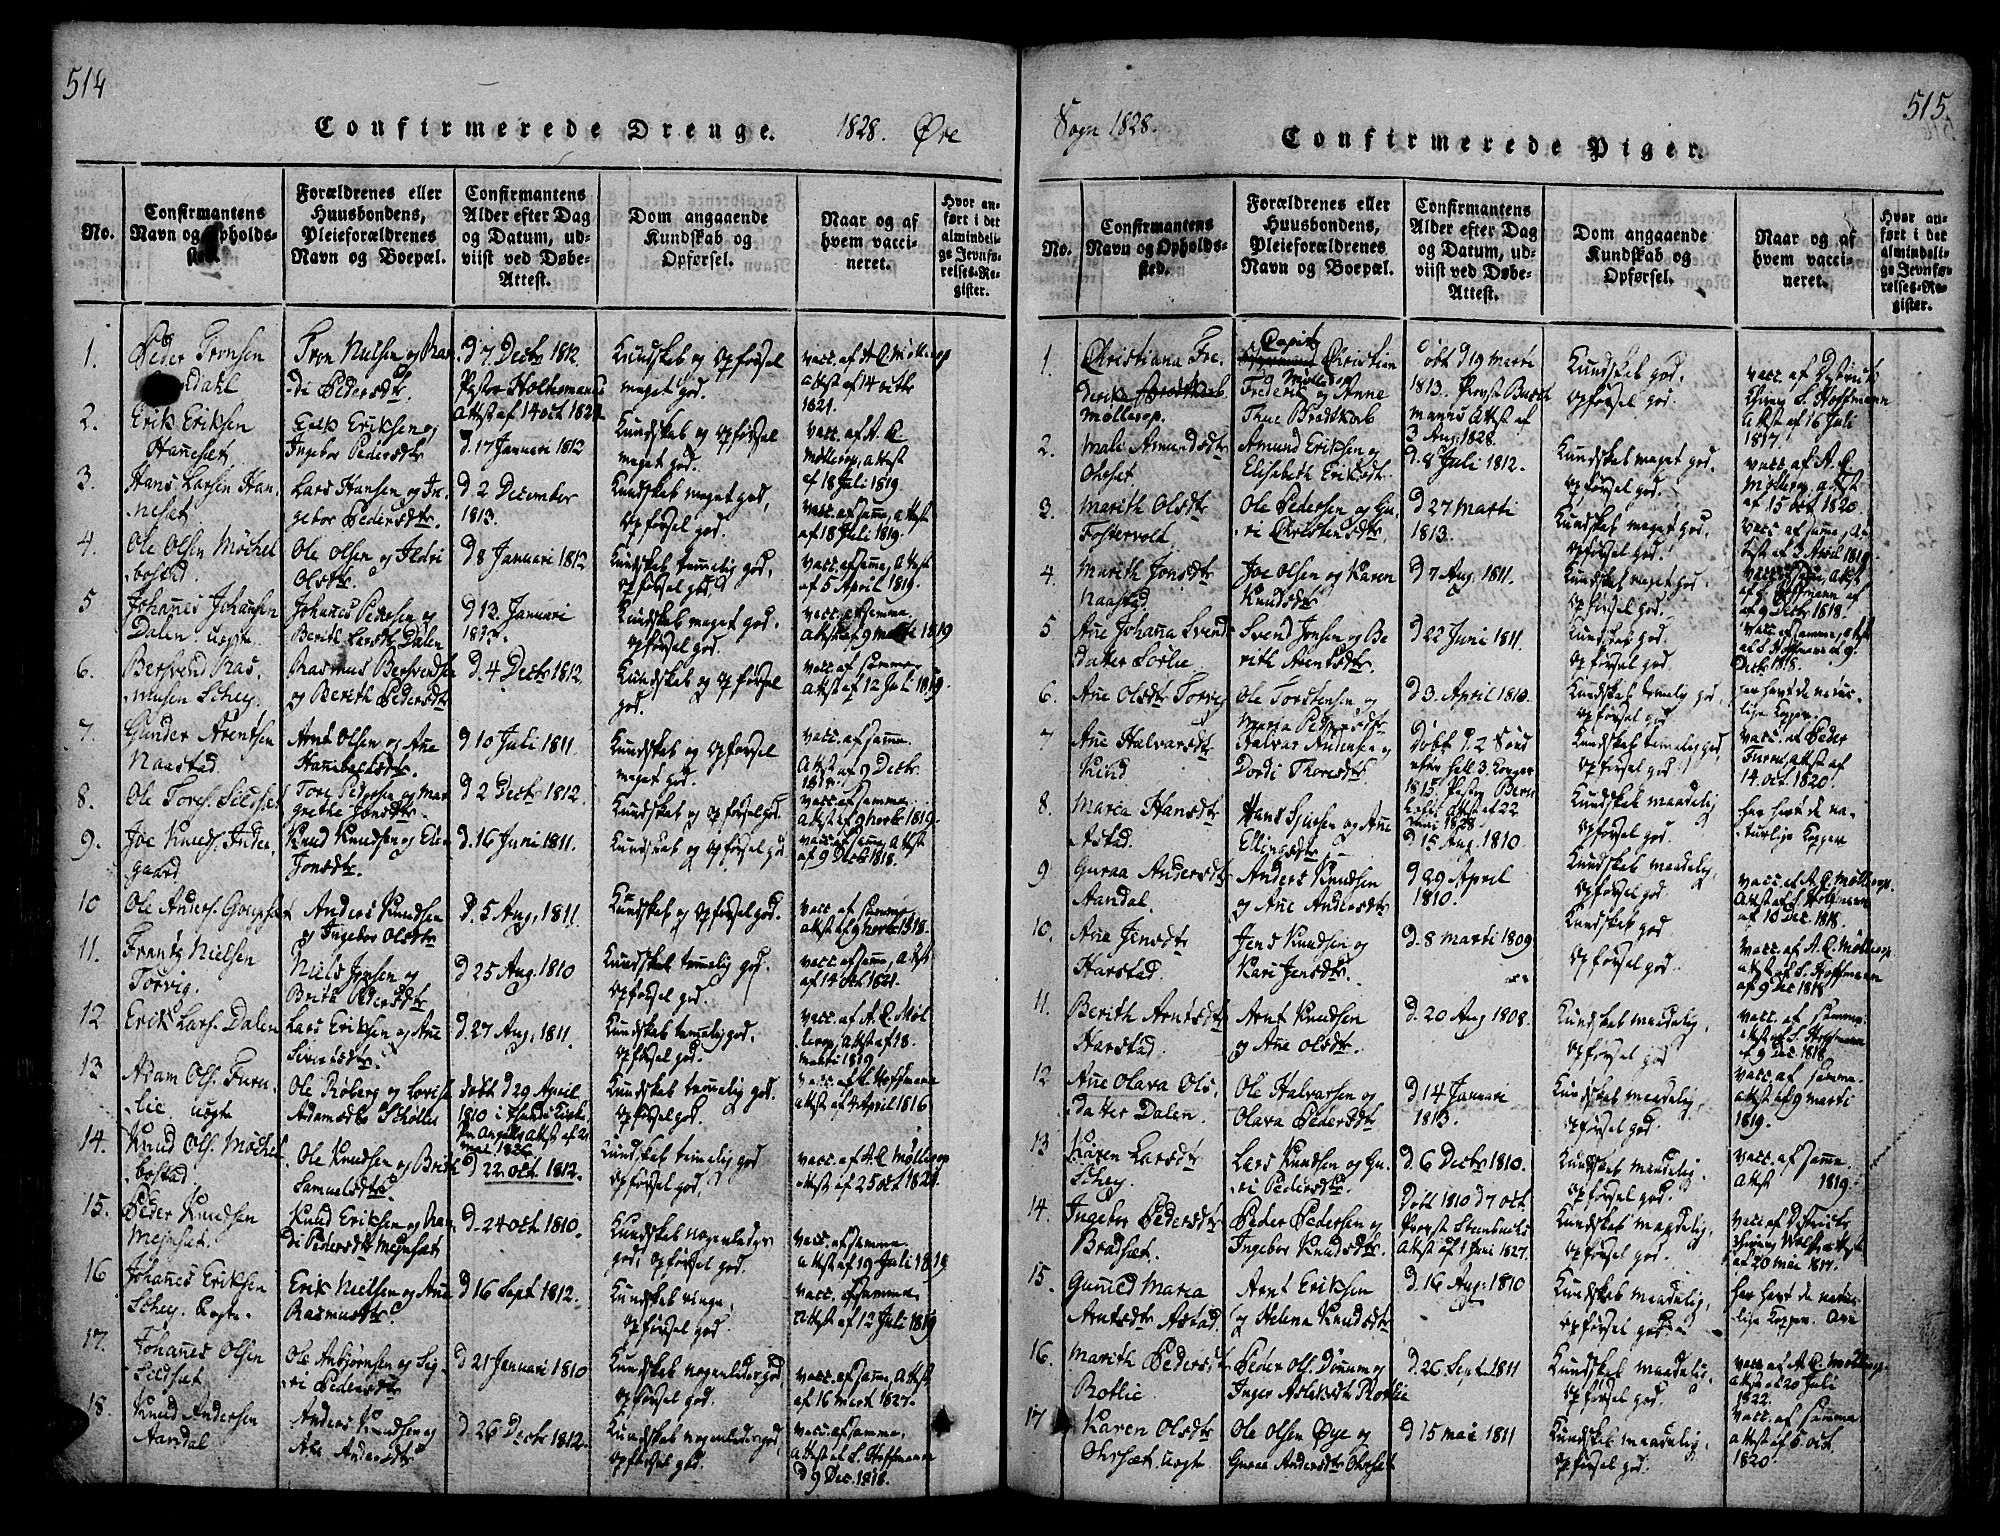 514
Confirmerede Drenge. 1828. Øre
No.
Confirmantens
Navn og Opholds-
sted.
Forældrenes eller
Huusbondens,
Pleieforældrenes
Navn og Boepæl.
Confirmantens
Alder efter Dag
og Datum, ud-
viist ved Døbe-
Attest.
Dom angaaende
Kundskab og
Opførsel.
Naar og af
hvem vacci-
neret.
Hvor an-
ført i det
almindeli-
ge Jevnfø-
relses-Re-
gister.
1.
Peder Tronsen
Tron Nielsen og Ran-
di Pedersdtr.
d 7 Decbr 1812
Pastor Holtermanns
Attst af 14 oct 1821
Kundskab og Opførsel
meget god.
vacc. af A. C. Möllerop
attst af 14 octbr
1821.
2.
Erik Eriksen
Hanneset
Erik Eriksen og
Ingebor Pedersdtr
d. 17 Januari 1812
Kundskab og Opførsel
meget god.
vacc. af A. C
Möllerop, attst
af 18 Juli 1819
3.
Hans Larsen Han-
neset
Lars Hansen og In-
gebor Pedersdtr
d 2 December
1813.
Kundskab meget god,
Opførsel god.
vacc. af samme, attst
af 18 Juli 1819.
4.
Ole Olsen Möchel-
bostad.
Ole Olsen og Ildri
Olsdtr
d 8 Januari 1812
Kundskab temmelig god,
opførsel god,
vacc. af samme, Attst
af 5 April 1819.
5
Johannes Johansen
Dalen uægte.
Johannes Pedersen og
Berith Larsdtr Dalen
d 13 Januari
Kundskab meget god
opførsel god.
vacc. af samme
attst af 9 marti 1819
6.
Bersvend Ras-
musen Schey.
Rasmus Bersvendsen
og Berith Pedersdtr
d. 4 Decbr 1812
Kundskab og opførsel
god.
vacc. af samme
attst af 12 Juli 1819.
7.
Gunder Arentsen
Naastad.
Arnt Olsen og Ane
d 10 Juli 1811.
Kundskab og opførsel
meget god.
vacc. af samme
attst af 9 Decbr
8.
Ole Tores. Sildset
Tore Pedersen og Mar-
grethe Jonsdtr.
d 2 Decbr 1812.
Kundskab og opførsel god.
vacc. af samme
attst af 9 novbr 1819.
9.
Joe Knuds. Inder-
gaard
Knud Knudsen og Eli
Jonsdtr.
d. 16 Juni 1811.
Kundskab og opførsel god
vacc. af samme, attst
af 9 Decbr 1818.
10
Ole Anders.
Anders Knudsen
og Ingebor Olsdtr
d. 5 Aug, 1811
Kundskab og Opførsel god.
vacc. af samme
attst af 9 novbr 1818.
11.
Frantz Nielsen
Torvig.
Niels Jensen og
Brith Pedersdtr
d 25 Aug. 1810
Kundskab temmelig god.
opførsel god.
vacc. af samme, attst
af 14 oct 1821.
12
Erik Lars. Dalen
Lars Eriksen og Ane
Siverdsdtr.
d. 27 Aug, 1811.
Kundskab temmelig god.
Opførsel god.
vacc. af A. C. Möl-
lerop, attst af 18.
marti 1819
13
Adam Ols. Furu-
lie. uægte
Ole Røberg og Lovise
Adamsdtr Schölles
døbt d 29 April
Kundskab temmelig god.
Opførsel god.
vacc. af Hoffmann
attst af 4 April 1816
14.
Knud Ols. Möchel-
bostad,
Ole Knudsen og Brith
Samuelsdtr
d 22 oct. 1812.
Kundskab temmelig god
opførsel god,
vacc. af A. C Möllerop
attst af 25 oct 1821
15.
Peder Knudsen
Mejsæt.
Knud Eriksen og Ran-
di Pedersdtr Mejsæt
d. 24 oct 1810.
Kundskab nogenledes
god, opførsel god.
vacc. af samme.
attst af 19 Juli 1819
16
Johanes Eriksen
Schey. uægte.
Erik Nielsen og Ane
Rasmusdtr.
d 16 Sept 1812.
Kundskab ringe,
opførsel god.
vacc. af samme.
attst af 12 Juli 1819
17.
Johanes Olsen
Sildset
Ole Anbjørnsen og Sig-
ri Pedersdtr
d 21 Januari 1810
Kundskab nogenledes god,
opførsel god.
vacc. af samme, attst
af 16 mart 1827.
18.
Knud Andersen
Aandal
Anders Knudsen og
Ane Andersdtr
d 26 Decbr 1812.
Kundskab nogenledes god,
Opførsel god.
vacc. af samme,
attst af L. Hoffmann
d 9 Dec. 1818.
515.
Sogn 1828.
Confirmerede Piger.
No.
Confirmantens
Navn og Opholds-
sted.
Forældrenes eller
Huusbondens,
Pleieforældrenes
Navn og Boepæl.
Confirmantens
Alder efter Dag
og Datum, ud-
viist ved Døbe-
Attest.
Dom angaaende
Kundskab og
Opførsel.
Naar og af
hvem vacci-
neret.
Hvor an-
ført i det
almindeli-
ge Jevnfø-
relses-Re-
gister.
1.
Christiana Fre-
Möllerop.
Christian
Frederik og Anne
døbt d 19 marti
1813.
3 Aug: 1828.
Kundskab god,
opførsel god.
vacc. af Distrikts
Chirurg L. Hoffmann
attst af 16 Juli
1817.
2.
Mali Amundsdtr
Ohrset
Amund Eriksen og
Elisabeth Eriksdtr
d. 8 Juli 1812.
Kundskab meget god,
opførsel god.
vacc. af A. C
Möllerop, attst
af 15 oct 1820.
3.
Marith Olsdtr
Fostervold
Ole Pedersen og Gu-
ri Christensdtr
d 27 Marti
1813.
Kundskab meget god,
opførsel god.
vacc. af samme, At-
test af 3 April 1819.
4
Marith Jonsdtr
Naastad.
Joe Olsen og Karen
Knudsdtr
d 7 Aug. 1811.
Kundskab meget god,
opførsel god.
af 9 Decbr 1818.
5
Ane Johanna Svends
datter Sørlie
Svend Jonsen og Be-
rith Arentsdtr
d 22 Juni 1811.
Kundskab god
opførsel god.
vacc. af samme, attst
af L Hoffmann af 9.
Decbr 1818.
6.
Ane Olsdtr Torvig
Ole Torstensen og
Maria Pedersdtr
d 3. April 1810.
Kundskab temmelig god,
opførsel god
har havt de natur-
lige Kopper.
7
Ane Halvarsdtr
Halvar Andersen og
Dordi Thoresdtr
Døbt d. 2 Sønd
efter Hell 3. Konger
1815.
Kundskab temmelig god,
opførsel god.
vacc. af Peder
Furu, attst af
14 oct. 1820.
8.
Marea Hansdtr
Astad.
Hans Sjursen og Ane
Ellingsdtr
d 15 Aug. 1810
Kundskab maadelig
opførsel god.
har havt de na-
turlige Kopper
9
Guraa Andersdtr
Aandal.
Anders Knudsen
og Ane Andersdtr
d 29 April
1810.
Kundskab maadelig.
opførsel god.
vacc. af A. C Möllerop.
af 10 Dec. 1818.
10.
Ane Jensdtr
Harstad.
Jens Knudsen og
Kari Jensdtr.
d. 8 marti 1809
Kundskab god
opførsel god.
vacc. af A. C. Möllerop
attst af L. Hoffmann
af 9 Dec 1818
11.
Berith Arntsdtr
Harstad.
Arnt Knudsen
og Ane Olsdtr.
d. 20 Aug 1808.
Kundskab maadelig,
opførsel god
vacc. af samme.
attst af L. Hoffmann
af 9 Dec. 1818.
12
Ane Olava Ols-
datter Dalen
Ole Halvarsen og
Olava Pedersdtr
d 14 Januari
1813.
Kundskab maadelig,
opførsel god.
vacc. af samme.
attst af 9 marti
1819.
13
Karen Larsdtr
Schey.
Lars Knudsen og Gu-
ri Pedersdtr.
d. 6 Decbr 1810.
Kundskab maadelig.
opførsel god.
vacc. af samme.
attst 1819.
14.
Ingebor Pedersdtr
Bradsæt.
Peder Pedersen og
Ingebor Knudsdtr.
Døbt 1810 d 7 oct
attst af 1 Juni 1827.
Kundskab maadelig,
opførsel god.
af 20 mai 1817.
15.
Gunild Maria
Arntsdtr Astad.
Arnt Eriksen
og Helena Knudsdtr
d. 16 Aug: 1810
Kundskab maadelig,
opførsel god
har havt de natur-
lige Kopper.
16.
Marith Pedersdtr
Rotlie.
Peder Ols. Dönnum og
Inger Aslaksdtr Rotlie
d. 26 Sept 1811
Kundskab maadelig,
opførsel god.
vacc. af A. C. Möllerop.
attst af 20 Juli
1822.
17
Karen Olsdtr
Ohrsæt. uægte
Ole Olsen Øye og
Guraa Andersdtr Ohrsæt
d 15 mai 1811
Kundskab maadelig,
opførsel god.
vacc. af samme
attst af 5 oct.
1820.